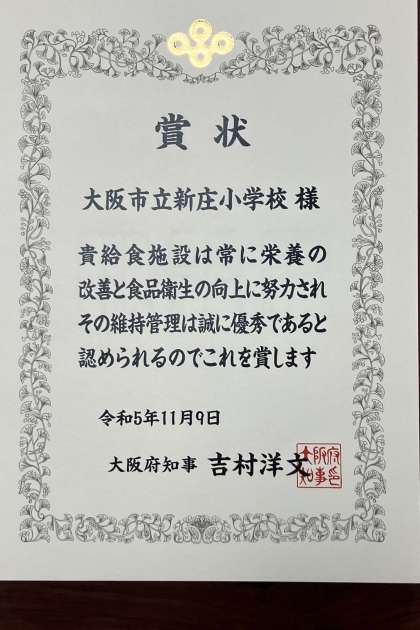 賞状
大阪市立新庄小学校 様
貴給食施設は常に栄養の
改善と食品衛生の向上に努力され
その維持管理は誠に優秀であると
認められるのでこれを賞します
令和5年11月9日
大阪府知事 吉村洋文
大阪府知事印